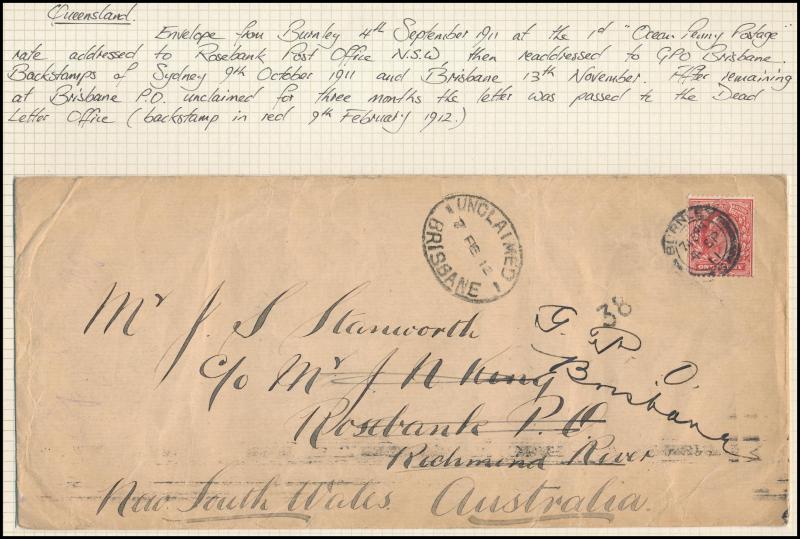 Queensland.
Envelope from Burnley 4th September 1911 at the 1d "Ocean Penny Postage"
rate addressed to Rosebank Post Office N.S.W, then readdressed to GPO Brisbane.
Backstamps of Sydney 9th October 1911 and Brisbane 13th November. After remaining
at Brisbane P.O. unclaimed for three months the letter was passed to the Dead
Letter Office (backstamp in red 9th February 1912.)
UNCLAIMED
7 FE 12
BRISBANE
BURNLEY
ONE PENNY
38
Mr J. S Stanworth
G. P. O.
Brisbane
c/o Mr J. N King
Rosebank P. O
Richmond River
New South Wales. Australia.